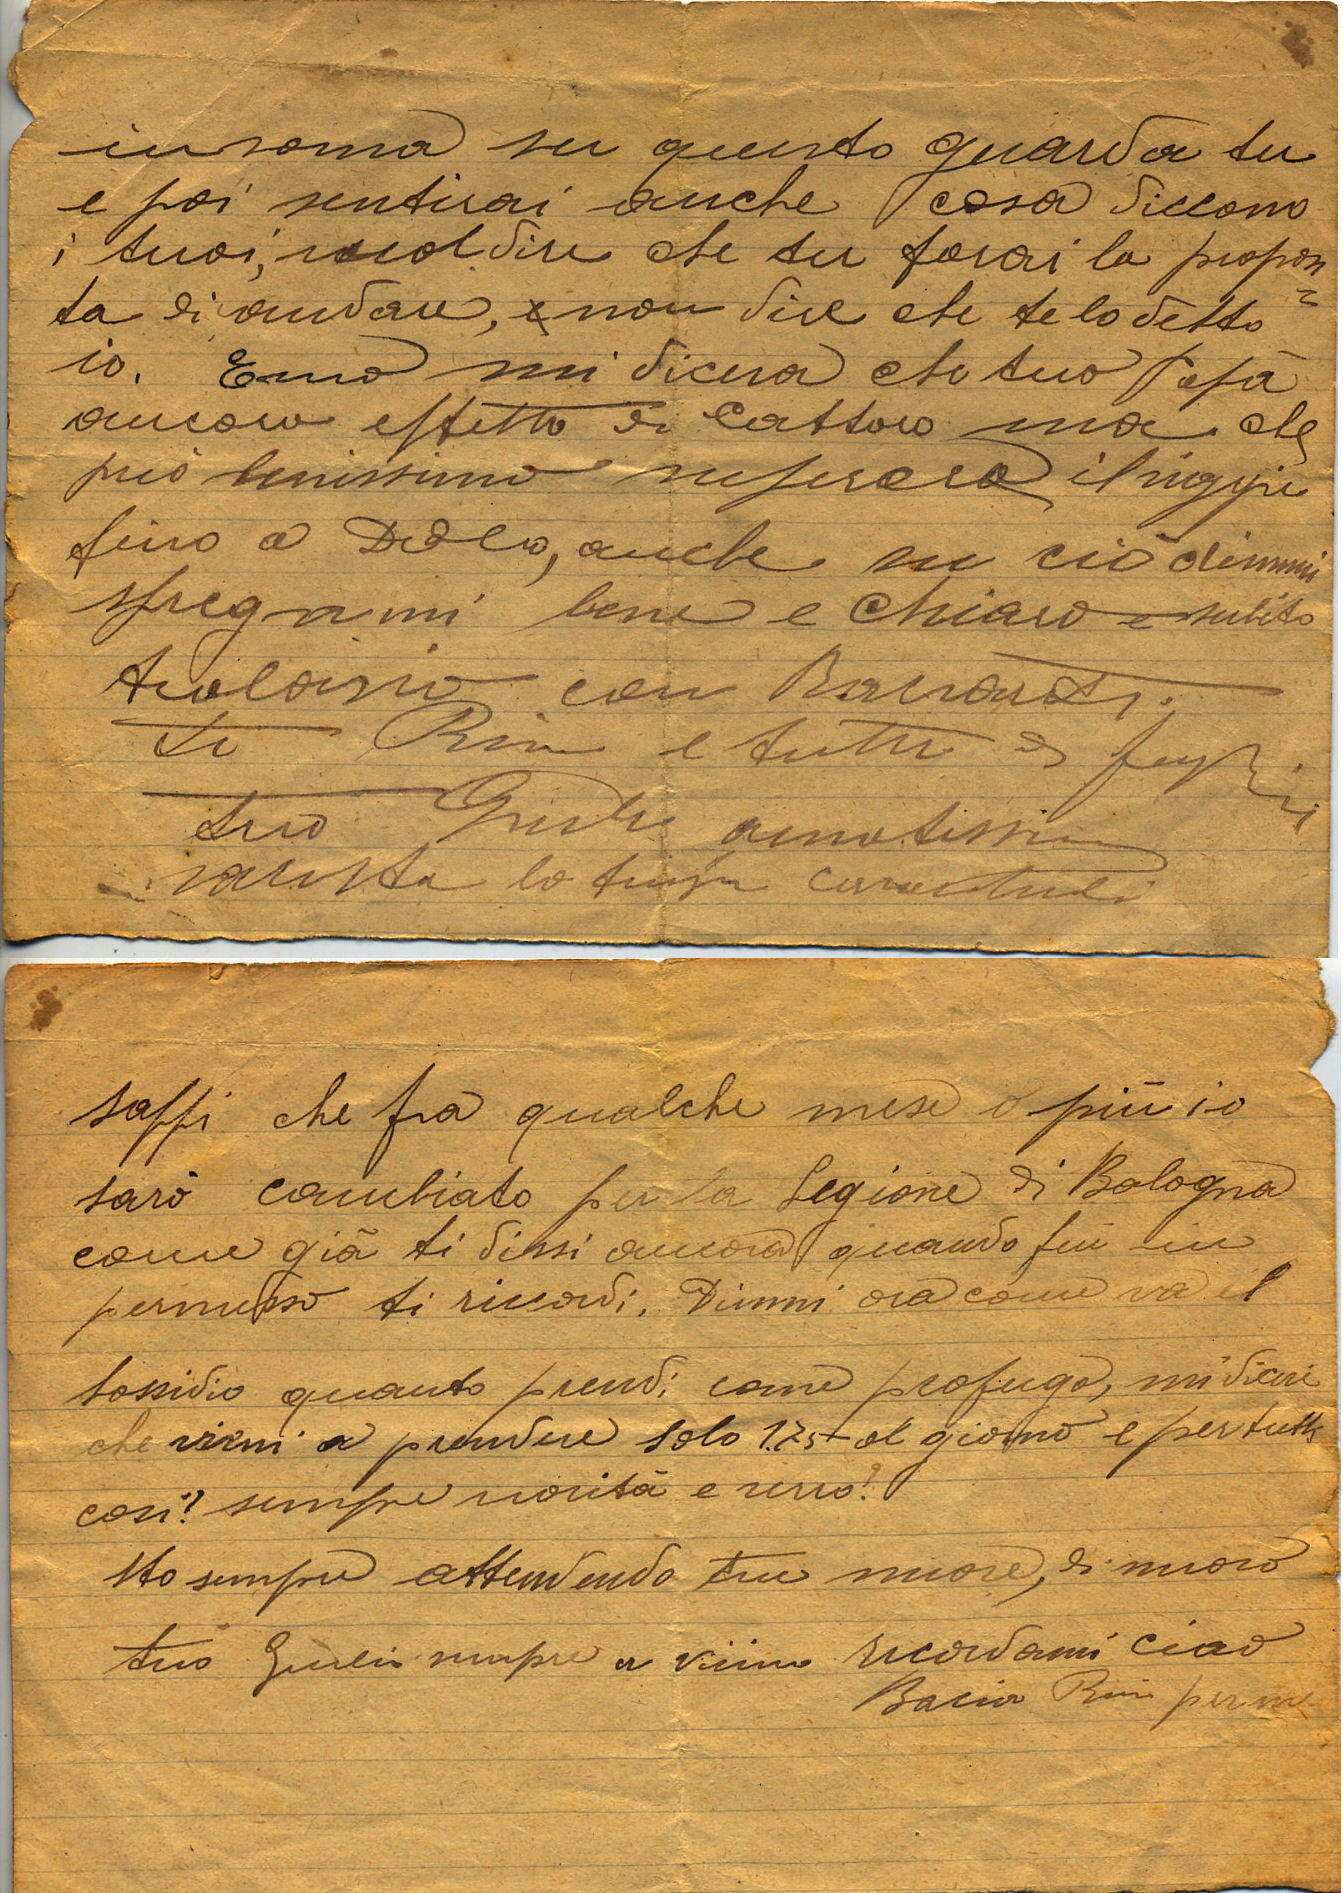 in soma su questo guarda tu
e poi sentirai anche cosa diccono
i tuoi, vuol dire che tu farai la propon
ta di andare, e non dire che te lo detto
io. Emo mi diceva che tuo Papà
ancora effetto di Cattaro ma che
può benissimo il viaggi
fino a Dolo, anche su ciò dimmi
spiegami bene e chiaro e subito
con
te Rina e tutti
tuo Giulio amatissimo
la tua
sappi che fra qualche mese o più io
sarò cambiato per la Legione di Bologna
come già ti dissi ancora quando fui in
permesso ti ricordi. Dimmi ora come va il
sossidio quanto prendi come profuga, mi dicevi
che vieni a prendere solo 1.75 al giorno e per tutti
così? sempre novità e verro?
Sto sempre attendendo tue nuove, di nuovo
tuo Giulio sempre a ricordami ciao
Bacia Rina per me